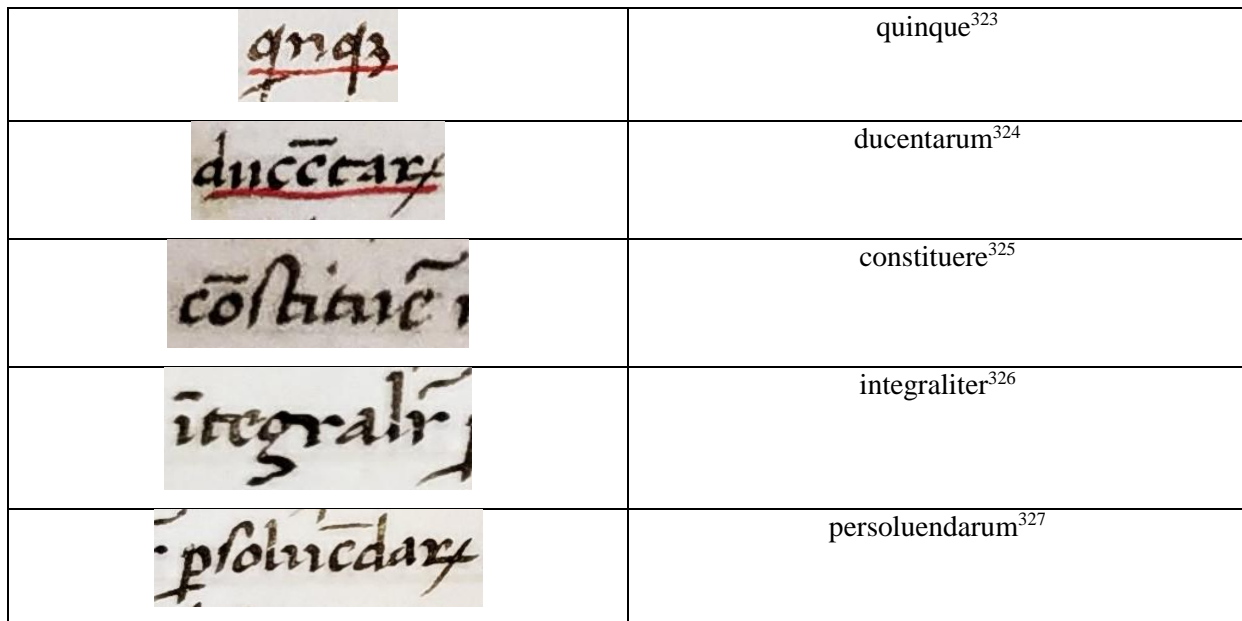 qnqꝫ quinque³²³
ducētaꝝ ducentarum³²⁴
cōstituē constituere³²⁵
ītegralr̄ integraliter³²⁶
ꝑsoluēdaꝝ persoluendarum³²⁷